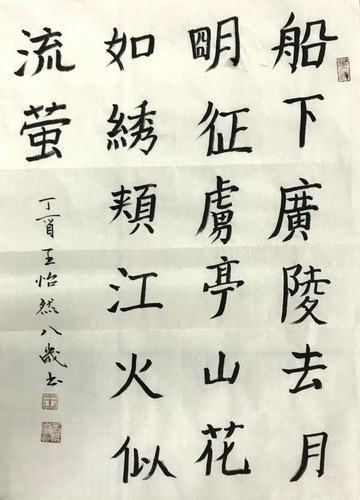 船下廣陵去月
朙征虜亭山花
如綉頰江火似
流萤
丁酉王怡然八歲书